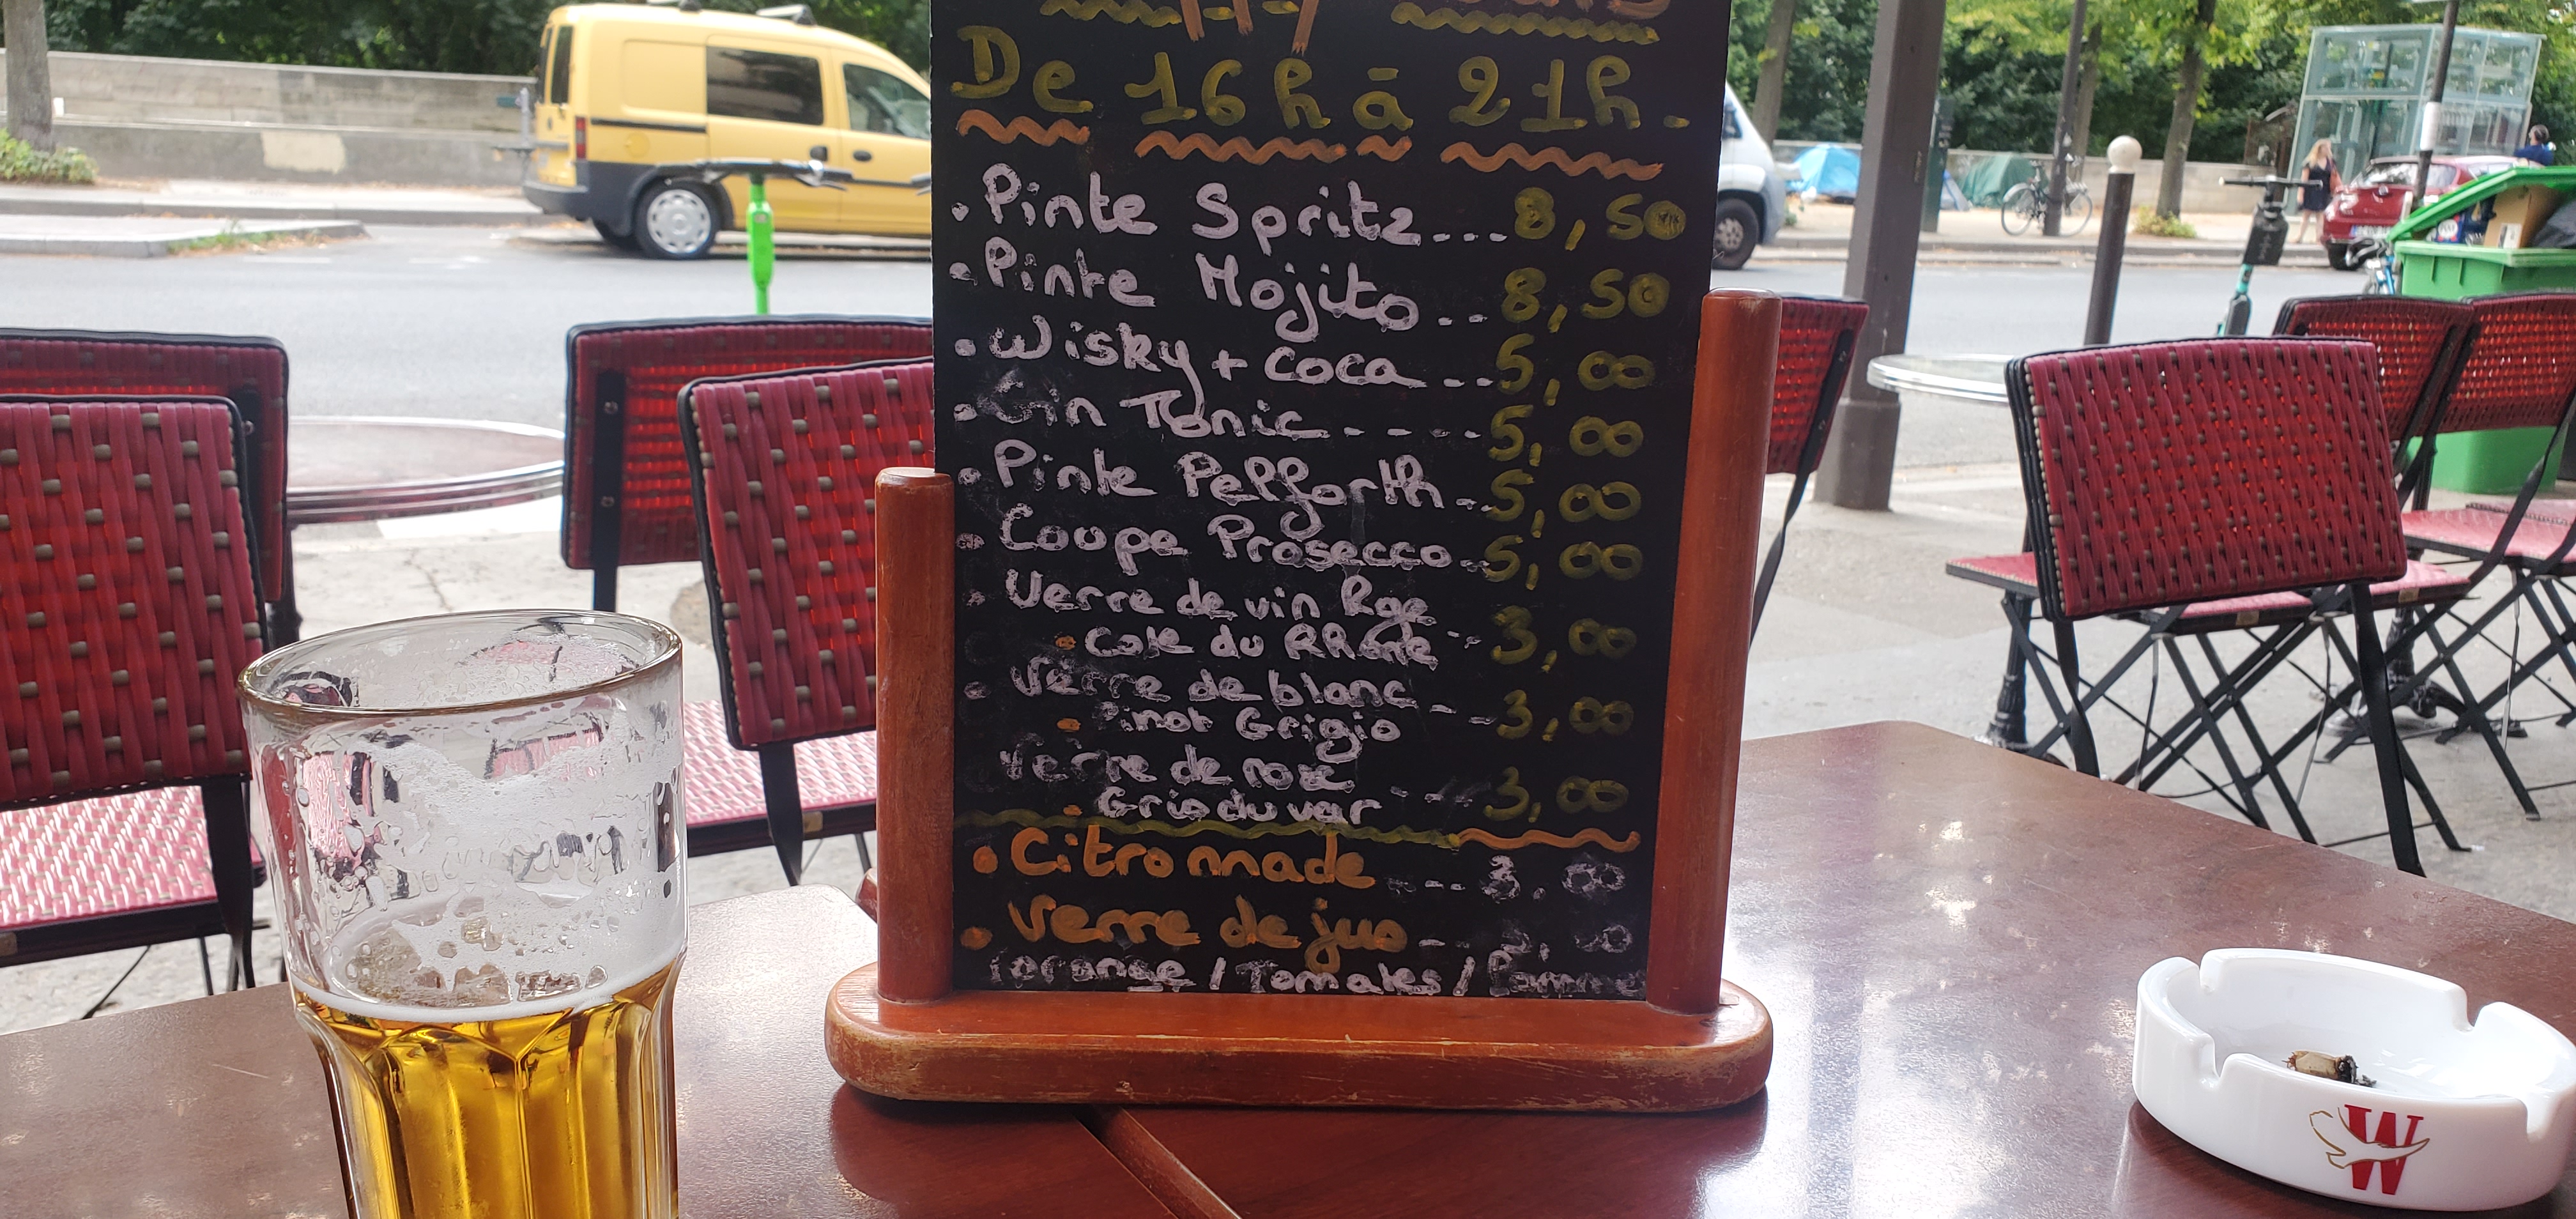 De 16h à 21h.
. Pinte Spritz...8,50
. Pinte Mojito...8,50
. Wisky + coca...5,00
. Gin Tonic-----5,00
. Pinte Pelfforth..5,00
. Coupe Prosecco..5,00
. Verre de vin Rge
. Cote du RRône -- 3,00
. Verre de blanc
. Pinot Grigio --- 3,00
Verre de rose
. Gris du var --- 3,00
. Citronnade ---- 3.00
. Verre de jus --
orange / Tomates / Pomme
W